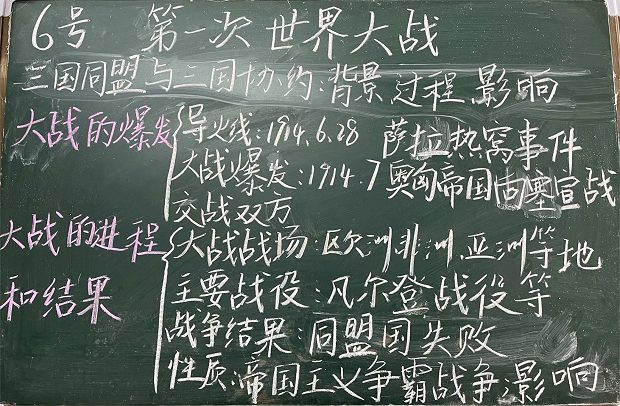 6号 第一次世界大战
三国同盟与三国协约:背景 过程 影响
大战的爆发 导火线:1914.6.28 萨拉热窝事件
大战爆发:1914.7 奥匈帝国向塞宣战
交战双方
大战的进程 大战战场:欧洲非洲.亚洲等地
和结果 主要战役:凡尔登战役等
战争结果:同盟国失败
性质:帝国主义争霸战争影响